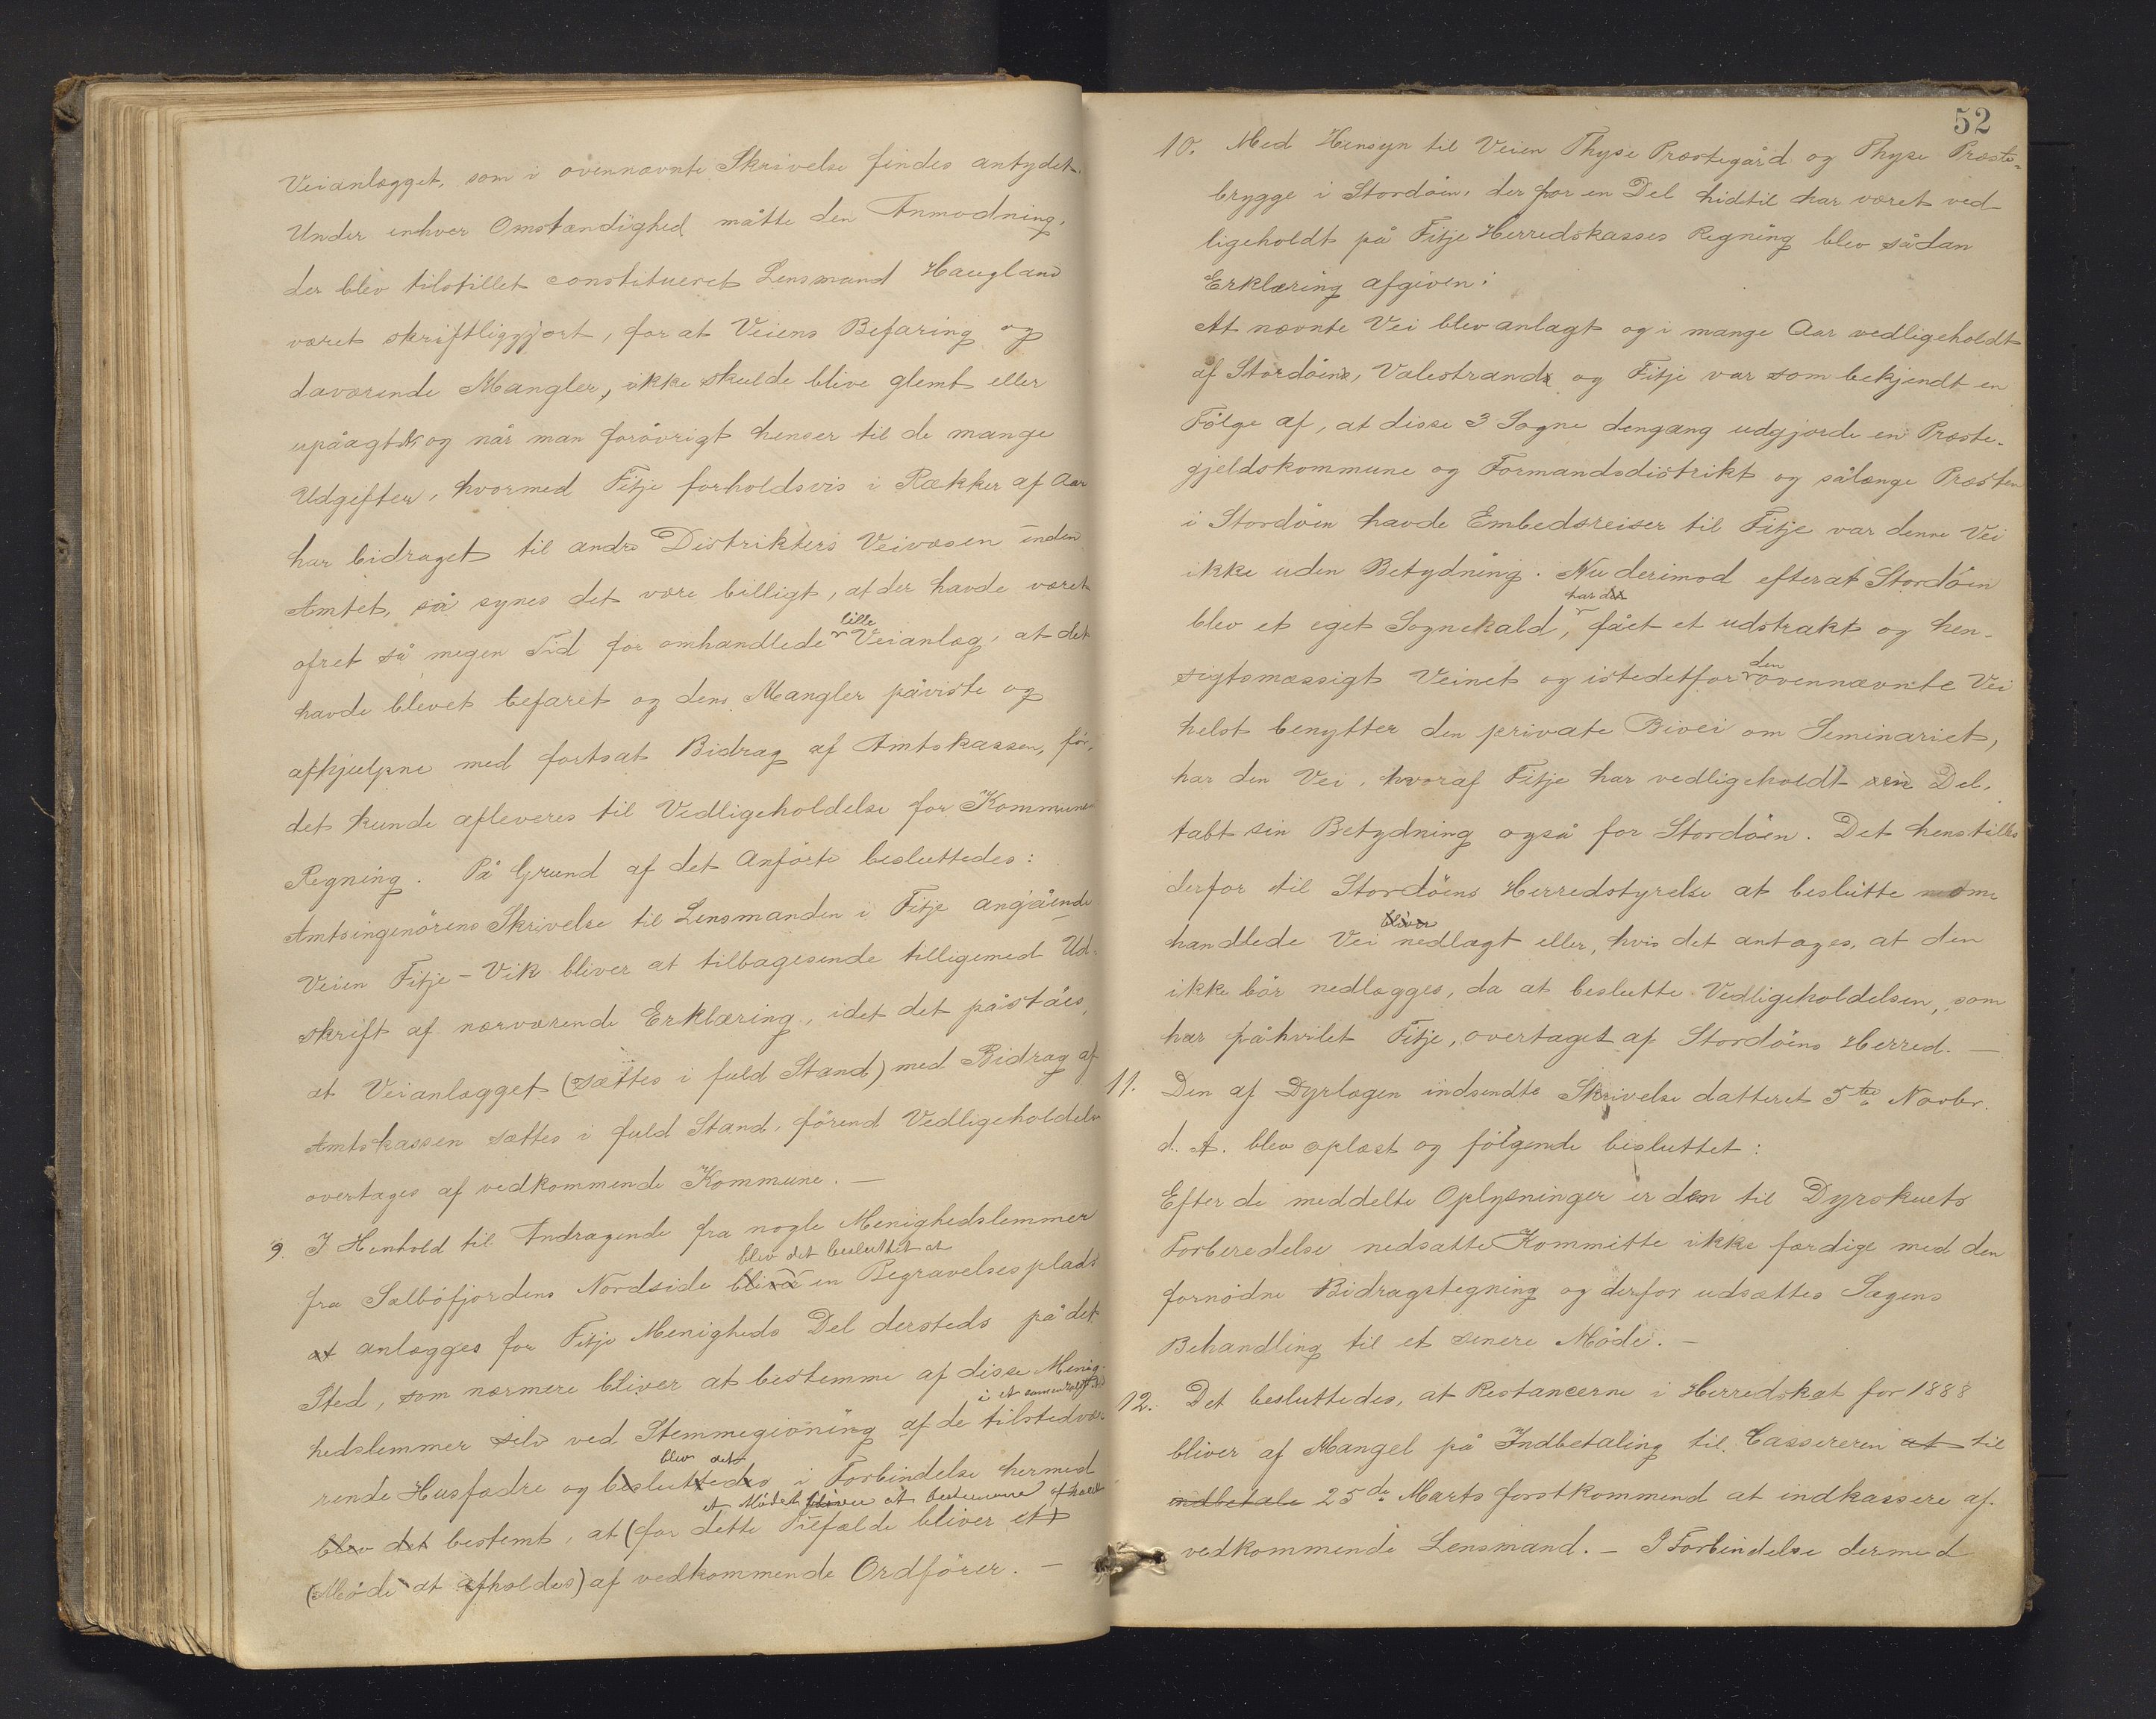 Veianlægget, som i ovennævnte Skrivelse findes antydet.
Under enhver Omstændighed måtte den Anmodning,
der blev tilstillet constitueret Lensmand Haugland
været skriftliggjort, for at Veiens Befaring og
daværende Mangler, ikke skulde blive glemt eller
upåagtet og når man forøvrigt henser til de mange
Udgifter, hvormed Fitje forholdsvis i Rækker af Aar
har bidraget til andre Distrikters Veivæsen inden
Amtet, så synes det være billigt, at der havde været
ofret så megen Tid for omhandlede lille Veianlæg, at det
havde blevet befaret og dens Mangler påviste og
afhjulpne med fortsat Bidrag af Amtskassen, før,
det kunde afleveres til Vedligeholdelse for Kommunens
Regning. På Grund af det Anførte besluttedes:
Amtsingenørens Skrivelse til Lensmanden i Fitje angjående
Veien Fitje-Vik bliver at tilbagesende tilligemed Ud-
skrift af nærværende Erklæring, idet det påståes,
at Veianlægget (sættes i fuld Stand) med Bidrag af
Amtskassen sættes i fuld Stand, førend Vedligeholdelse
overtages af vedkommende Kommune. —
9. I Henhold til Andragende fra nogle Menighedslemmer
blev det besluttet at
fra Sælbøfjordens Nordside blive en Begravelsesplads
at anlægges for Fitje Menigheds Del dersteds på det
Sted, som nærmere bliver at bestemme af disse Menig-
i et sammenkaldt
hedslemmer selv ved Stemmegivning af de tilstedvæ-
blev det
rende Husfædre og besluttedes i Forbindelse hermed
et Mødet bliver at bestemme afholdt
blev det bestemt, at (for dette Tilfælde bliver et
(Møde at afholdes) af vedkommende Ordfører. —
52
10. Med Hensyn til Veien Thyse Præstegård og Thyse Præste-
brygge i Stordøen, der for en Del hidtil har været ved-
ligeholdt på Fitje Herredskasses Regning blev sådan
Erklæring afgiven:
At nævnte Vei blev anlagt og i mange Aar vedligeholdt
af Stordøens, Valestrands og Fitje var som bekjendt en
Følge af, at disse 3 Sogne dengang udgjorde en Præste-
gjeldskommune og Formandsdistrikt og sålænge Præsten
i Stordøen havde Embedsreiser til Fitje var denne Vei
ikke uden Betydning. Nu derimod efterat Stordøen
har det
blev et eget Sognekald, fået et udstrakt og hen-
sigtsmæssigt Veinet og istedetfor den ovennævnte Vei
helst benytter den private Bivei om Seminariet,
har den Vei, hvoraf Fitje har vedligeholdt sin Del,
tabt sin Betydning også for Stordøen. Det henstilles
derfor til Stordøens Herredstyrelse at beslutte om-
bliver
handlede Vei nedlagt eller, hvis det antages, at den
ikke bør nedlægges, da at beslutte Vedligeholdelsen, som
har påhvilet Fitje, overtaget af Stordøens Herred. —
11. Den af Dyrlægen indsendte Skrivelse datteret 5te Novbr.
d. A. blev oplæst og følgende besluttet:
Efter de meddelte Oplysninger er den til Dyrskuets
Forberedelse nedsatte Kommitte ikke færdige med den
fornødne Bidragstegning og derfor udsættes Sagens
Behandling til et senere Møde. —
12. Det besluttedes, at Restancerne i Herredskat for 1888
bliver af Mangel på Indbetaling til Cassereren at til
indbetale 25de Marts førstkommend at indkassere af
vedkommende Lensmand. — I Forbindelse dermed